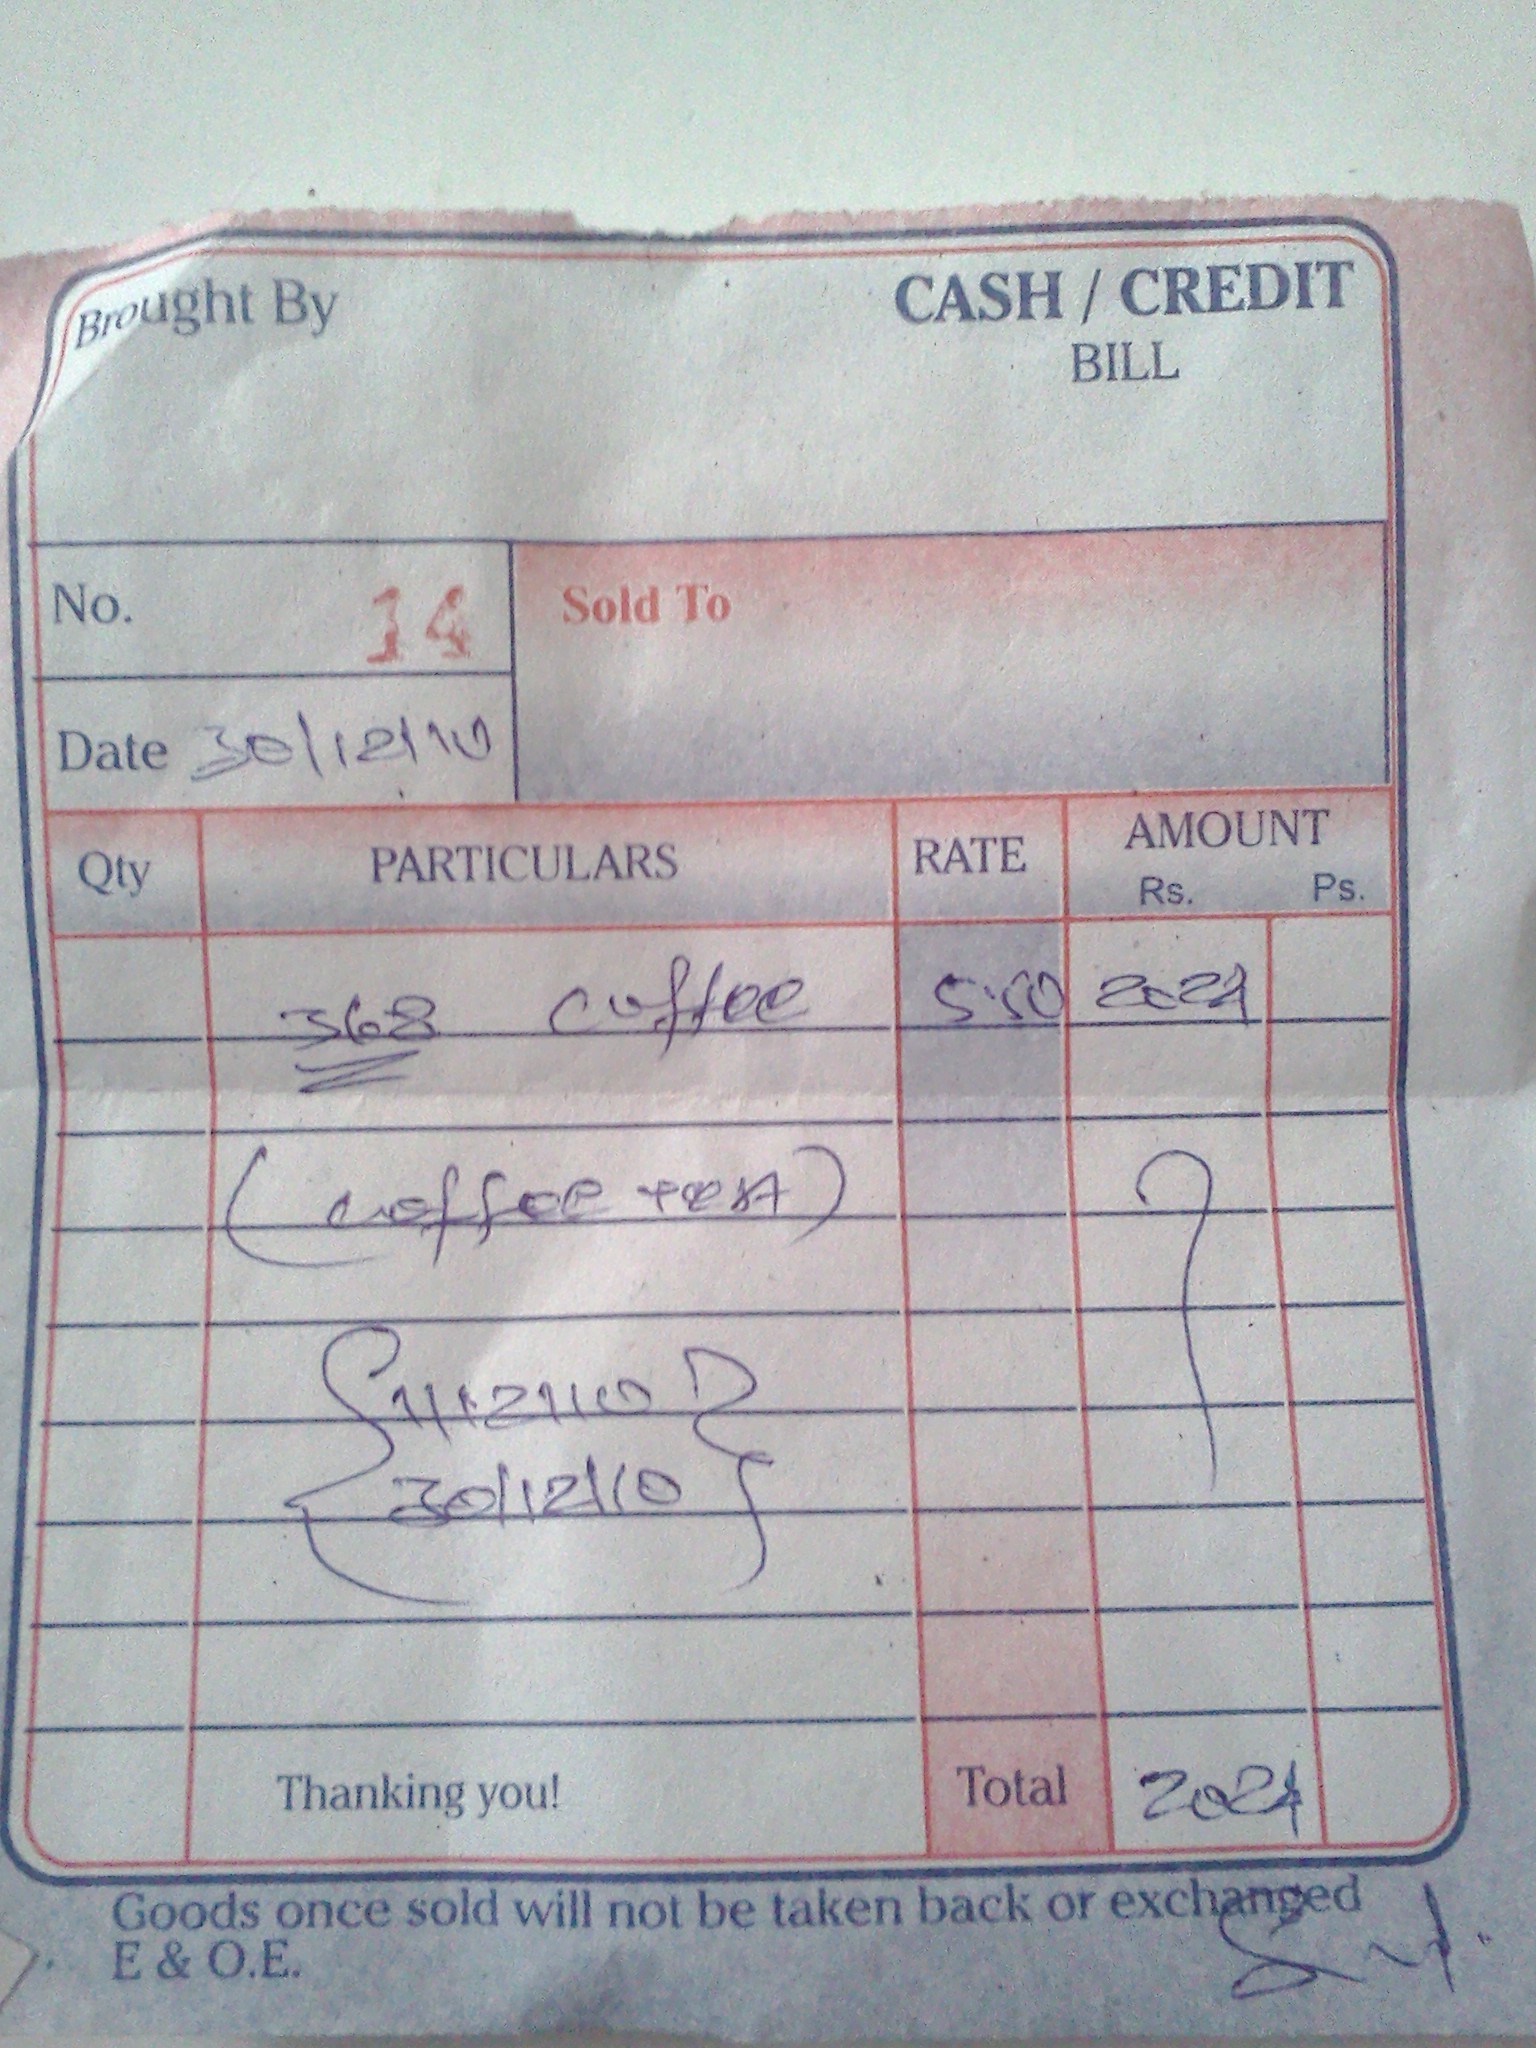 Brought By
CASH / CREDIT
BILL
No. 14
Sold To
Date 30/12/10
Qty PARTICULARS RATE AMOUNT
Rs. Ps.
368 coffee 5.50 2024
(coffee
1/12/10
30/12/10
Thanking you! Total 2024
Goods once sold will not be taken back or exchanged
E & O.E.